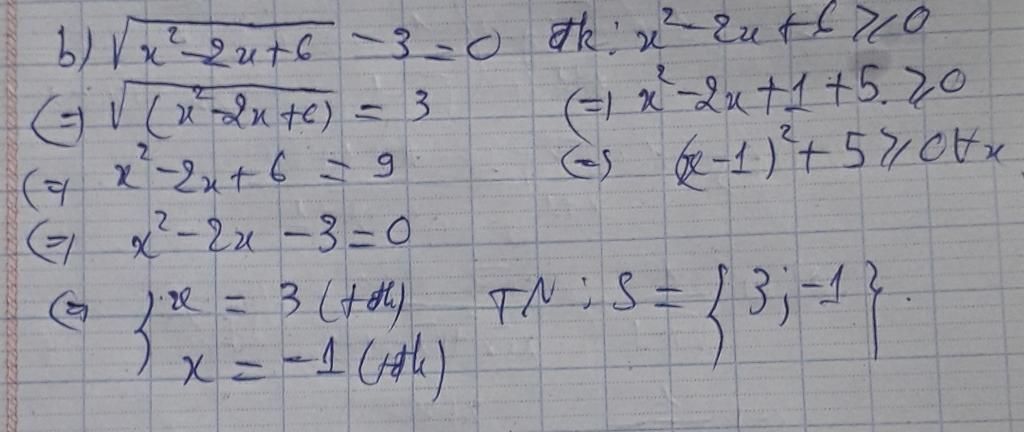 b) √(x²-2x+6) - 3 = 0 đk: x²-2x+6 ≥ 0
(=) √(x²-2x+6) = 3 (=) x²-2x+1+5 ≥ 0
(=) x²-2x+6 = 9 (=) (x-1)²+5 ≥ 0 ∀x
(=) x²-2x-3=0
(=) { x = 3 (tđk) TN: S = {3; -1}.
x = -1 (tđk)